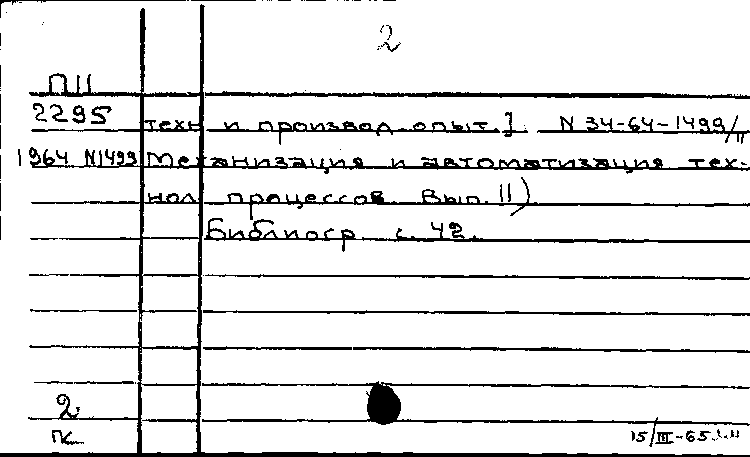 2
П11
2295 техн и производ. опыт.]. N 34-64-1499/11
1964 N1499 Механизация и автоматизация тех-
нол процессов Вып. 11)
Библиогр. с. 42.
2
пк 15/III-65